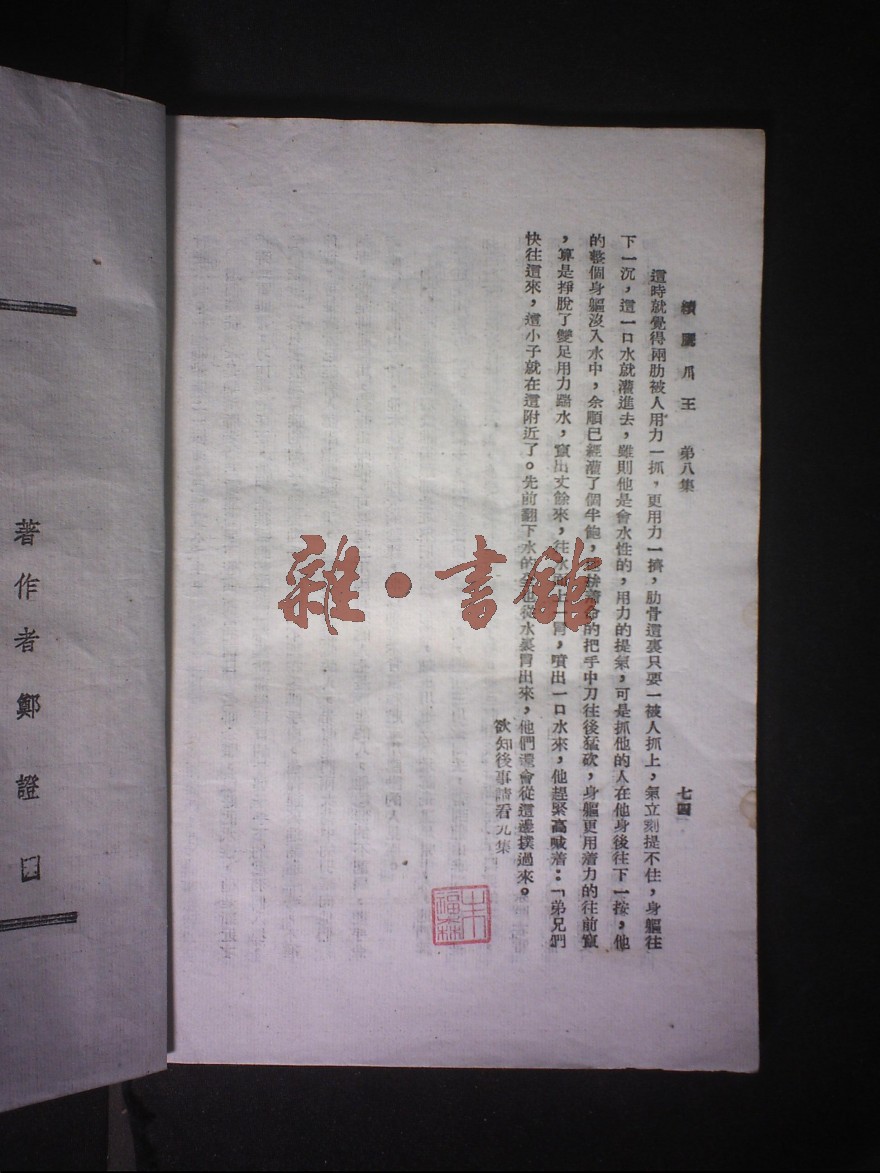 續鷹爪王　第八集　七四
這時就覺得兩肋被人用力一抓，更用力一擠，肋骨這裏只要一被人抓上，氣立刻提不住，身軀往
下一沉，這一口水就灌進去，雖則他是會水性的，用力的提氣，可是抓他的人在他身後往下一按，他
的整個身軀沒入水中，余順已經灌了個半飽，他拚着命的把手中刀往後猛砍，身軀更用着力的往前竄
，算是掙脫了雙足用力踹水，竄出丈餘來，往水面上一冒，噴出一口水來，他趕緊高喊着：「弟兄們
快往這來，這小子就在這附近了。先前翻下水的也從水裏冒出來，他們還會從這邊撲過來。
欲知後事請看九集
朱福森
雜·書館
著作者鄭證因